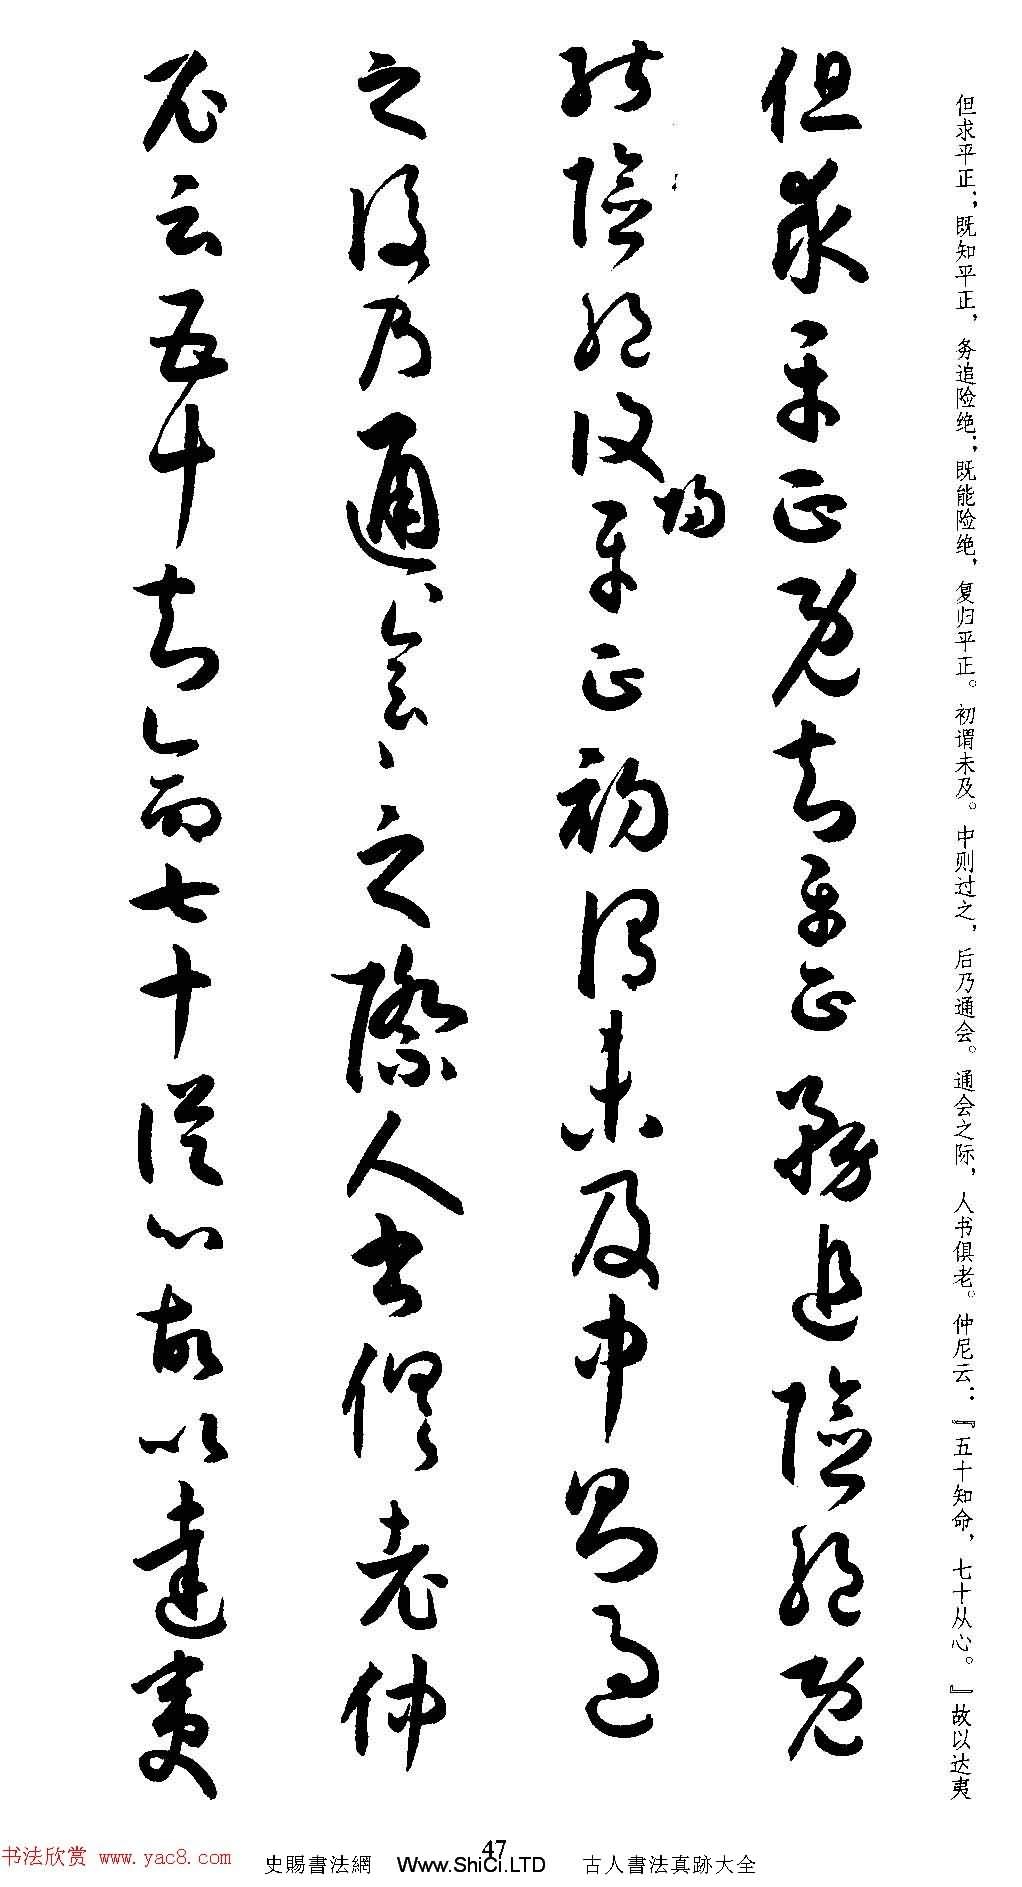 但求平正；既知平正，务追险绝；既能险绝，复归平正。初谓未及。中则过之，后乃通会。通会之际，人书俱老。仲尼云：『五十知命，七十从心。』故以达夷
但求平正既知平正務追險絕既
能險絕復歸平正初謂未及中則過
之後乃通會通會之際人書俱老仲
尼云五十知命七十從心故以達夷
47
书法欣赏 www.yac8.com
史賜書法網 Www.ShiCi.LTD 古人書法真跡大全